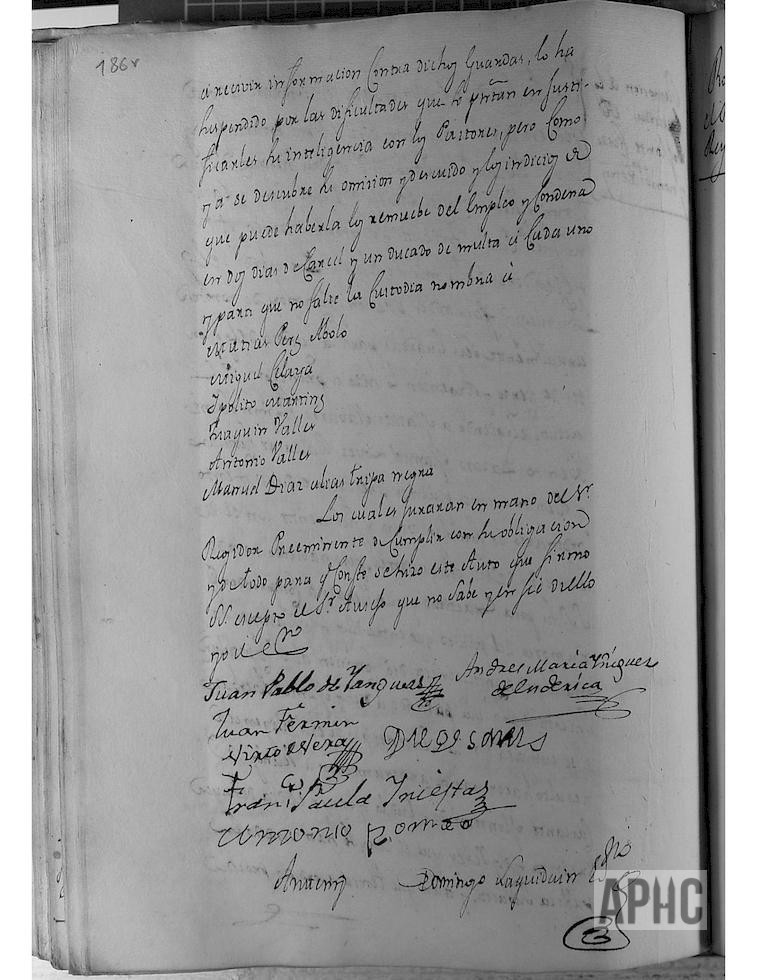 186v
a recivir informacion Contra dichos Guardas, lo ha
suspendido por las dificultades que se presentan en Justi-
ficarles su inteligencia con los Pastores, pero Como
ya se descubre su omision y descuido y los indicios de
que puede haberla los remuebe del Empleo y Condena
en dos dias de Carcel y un ducado de multa á Cada uno
y para que no falte la Custodia nombra á
Matias Perez
Miguel Celaya
Ipolito Martinez
Juaquin Valles
Antonio Valles
Manuel Diaz alias tripa negra
Los cuales juraran en mano del Sr.
Regidor Preeminente de Cumplir con su obligacion
y de todo para q Conste se hizo este Auto que firmo
SS. excepto el Sr. que no sabe y en fee de ello
yo el Es.no
Juan Pablo de Yanguas
Andres Maria Yñiguez
de
Juan Fermin
Diego
Fran.co Paula Yniestas
Antonio Romeo
Ante mi
Domingo Laquiduin
APHC